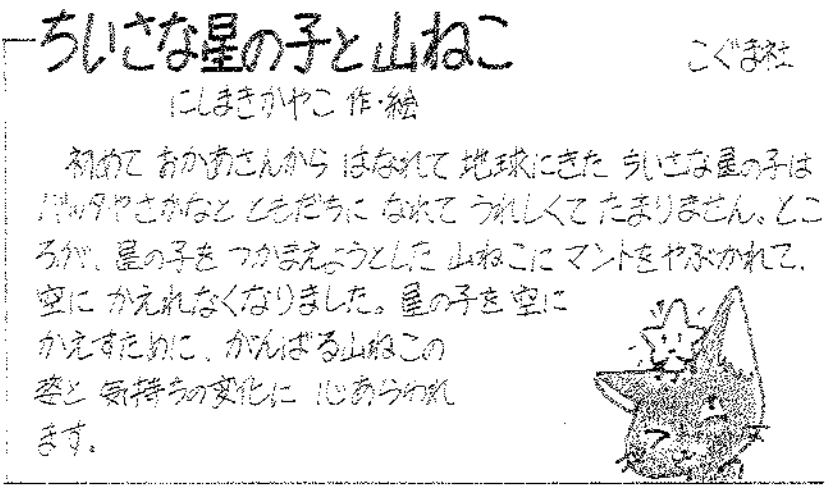 ちいさな星の子と山ねこ
こぐま社
にしまきかやこ 作・絵
初めて おかあさんから はなれて 地球にきた ちいさな星の子は
バッタやさかなと ともだちに なれて うれしくて たまりません。とこ
ろが、星の子を つかまえようとした 山ねこに マントをやぶかれて、
空に かえれなくなりました。星の子を空に
かえすために、がんばる山ねこの
姿と 気持ちの変化に 心あらわれ
ます。